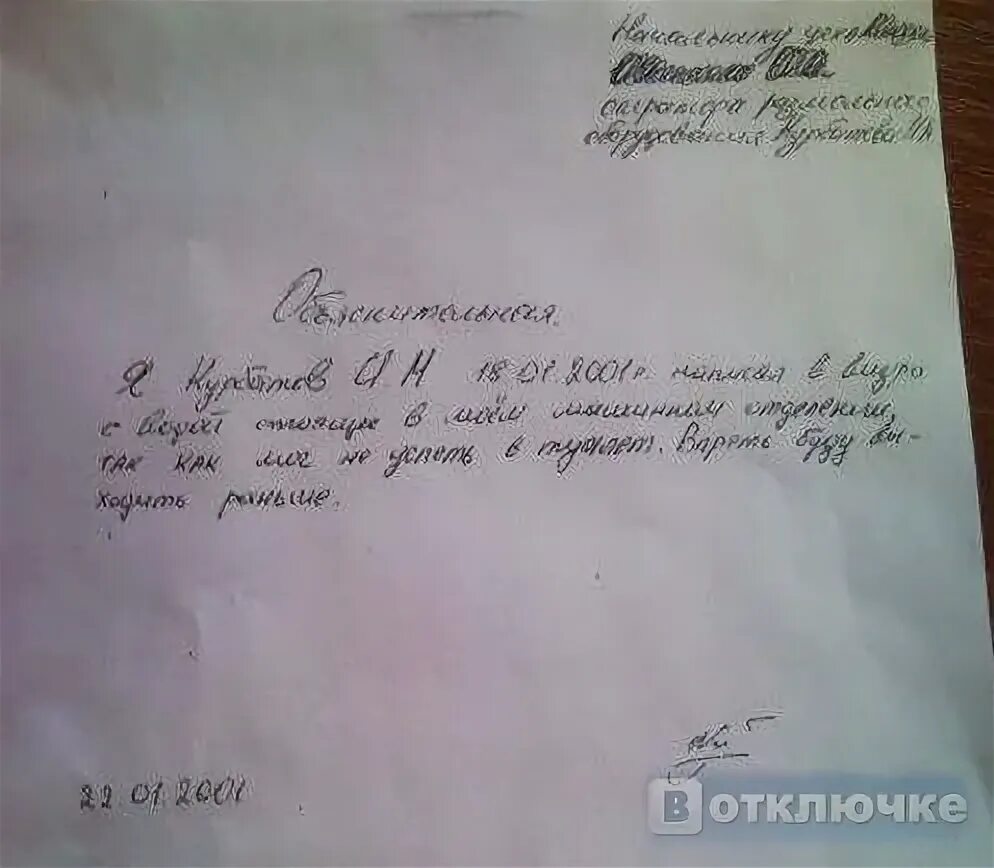 Начальнику цеха
оператора размольного
оборудования Курбатов
Объяснительная.
Я Курбатов И Н 18.01.2001г. написал в ведро
с водой стоящую в моём машинном отделении,
так как мог не успеть в туалет. Впреть буду вы-
ходить раньше.
22 01 2001
В отключке